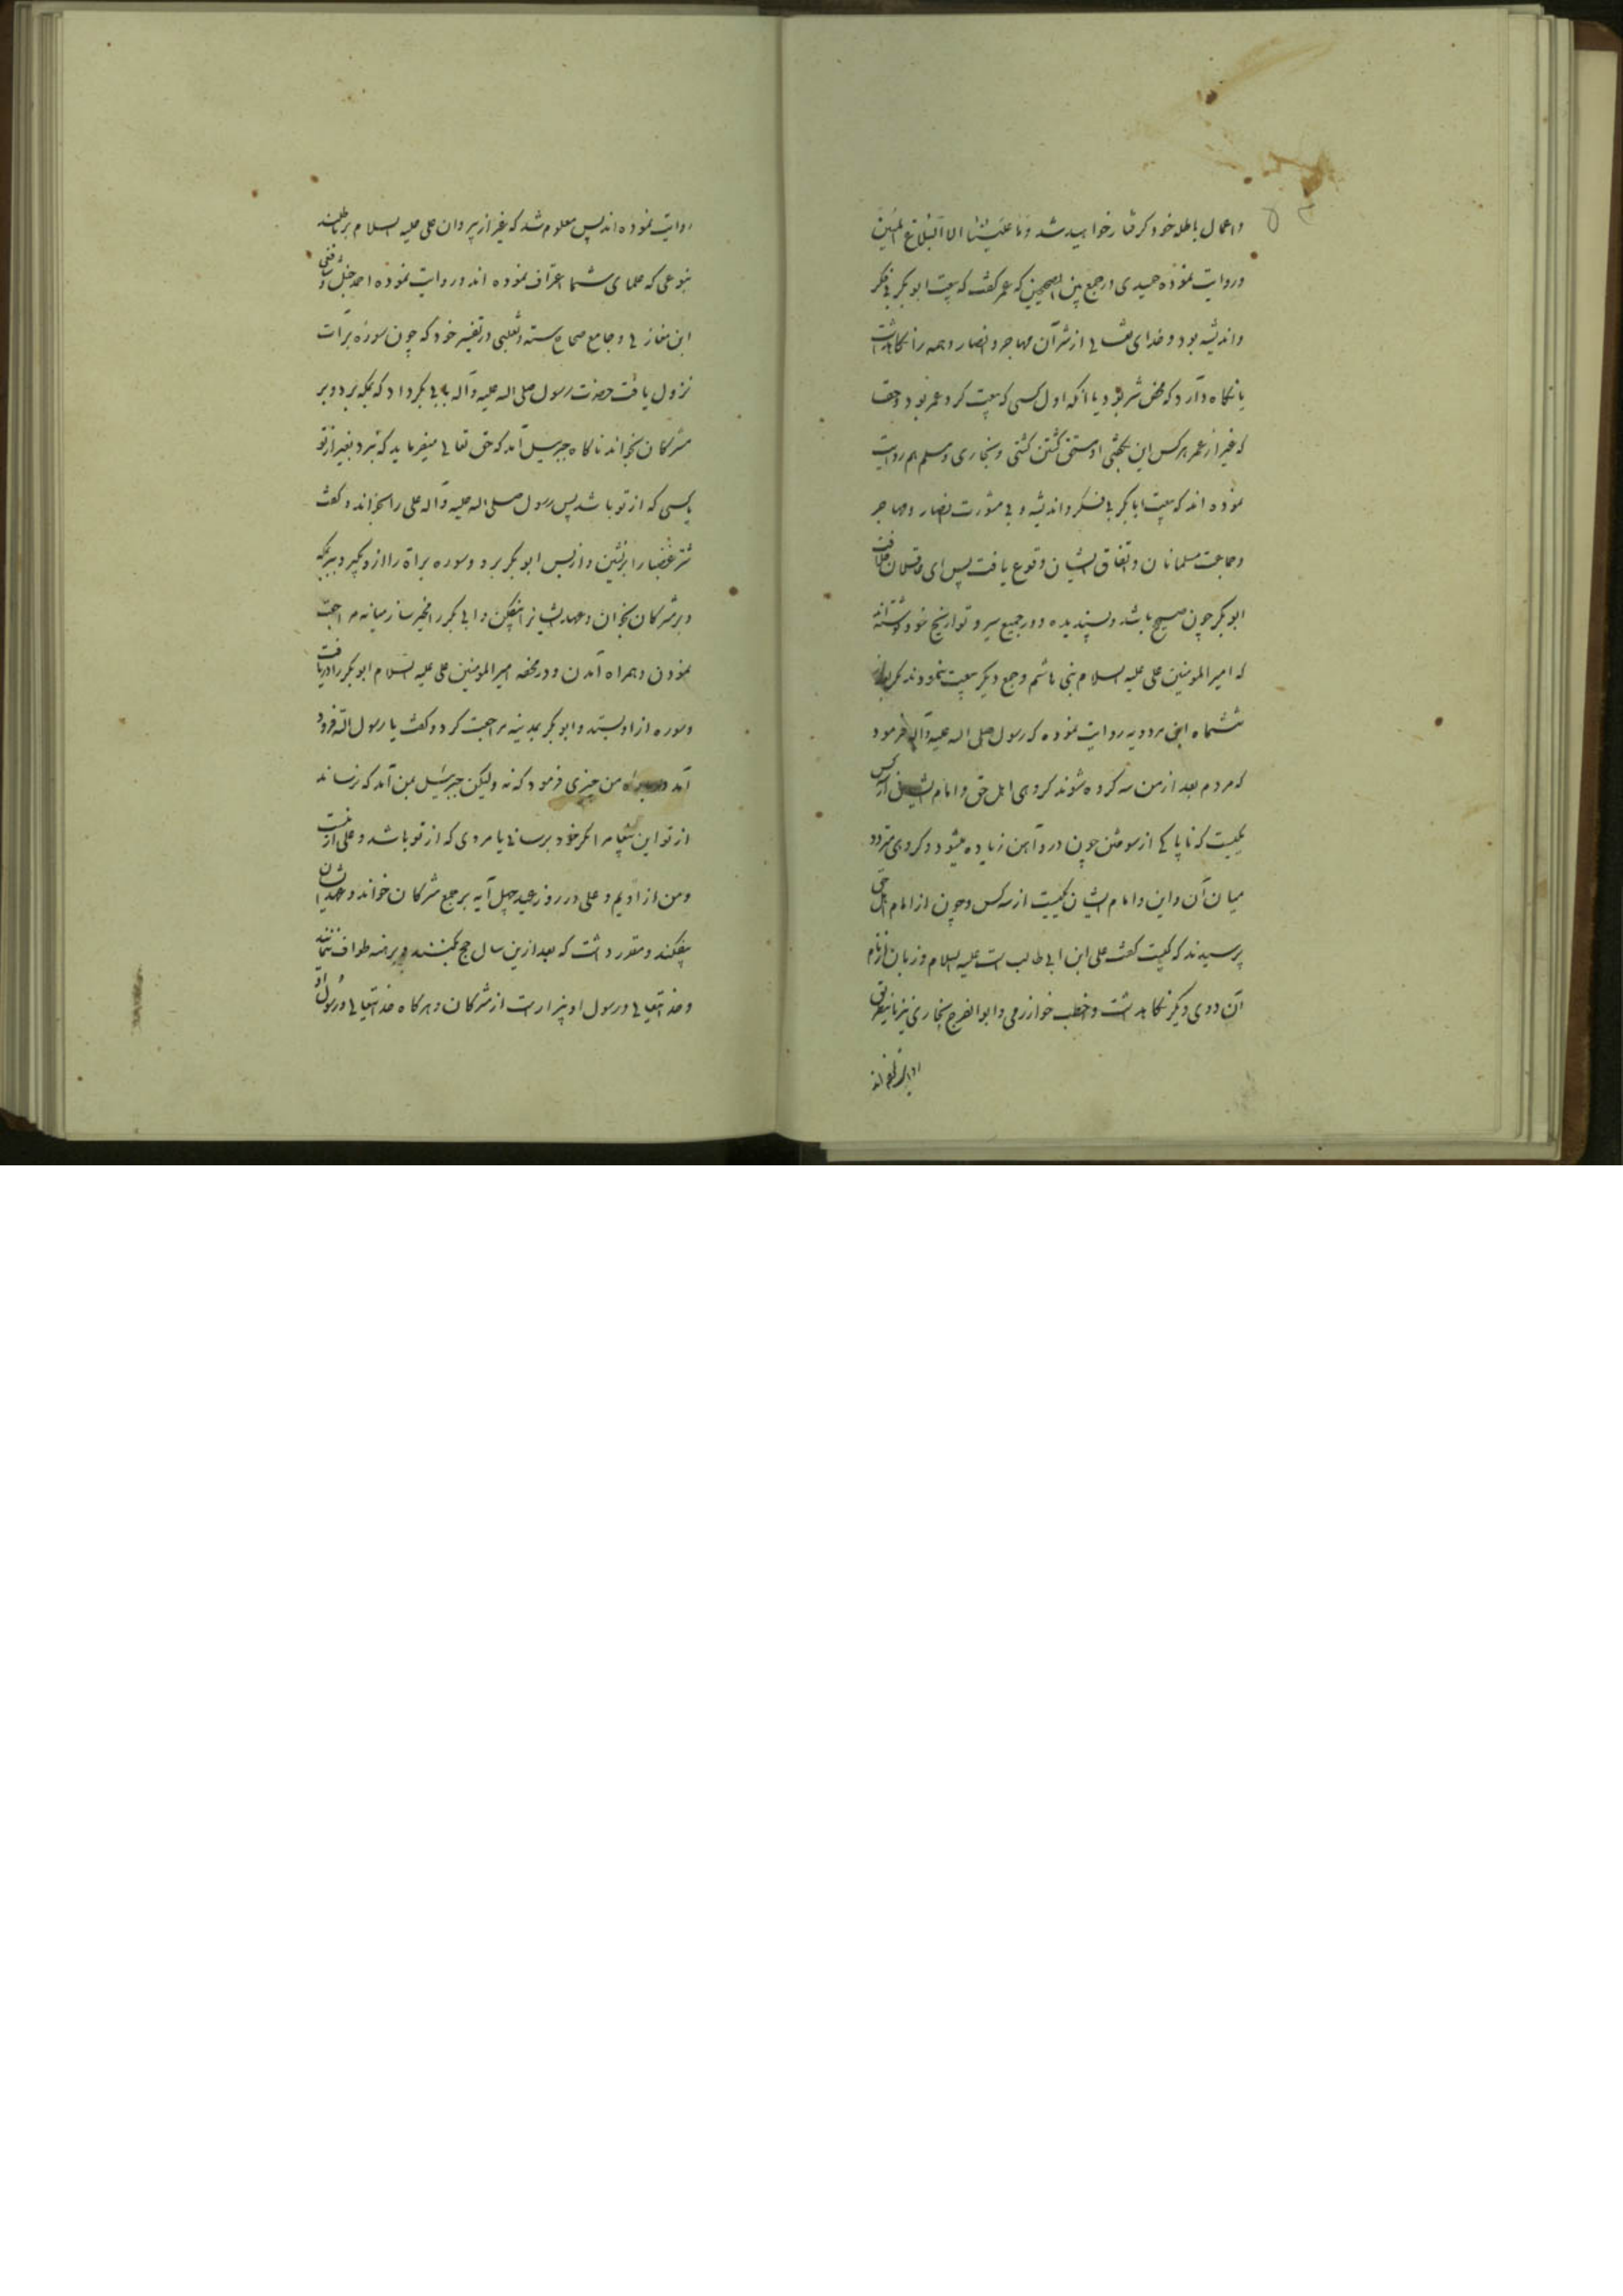 واعمال باطله خود گرفتار خواهید شد وَمَا عَلَیْنَا الا الْبَلَاغ الْمُبِین
وروایت نموده حمیدی در جمع بین الصحیحین که عمر گفت که بیعت ابو بکر بی فکر
واندیشه بود و خدای تعالی از شر آن مهاجر و انصار و همه را نگاهداشت
یا نگاه دارد که محض شر بود با آنکه اول کسی که بیعت کرد عمر بود
که غیر از عمر هر کس این گفتی او مستحق کشتن گشتی و بخاری و مسلم هم روایت
نموده اند که بیعت ابا بکر بی فکر و اندیشه و بی مشورت انصار و مهاجر
وجماعت مسلمانان و اتفاق ایشان وقوع یافت پس ای عاقلان خلافت
ابو بکر چون صحیح باشد و پسندیده و در جمیع سیر و تواریخ خود نوشته‌اند
که امیر المومنین علی علیه السلام بنی هاشم و جمع دیگر بیعت ننمودند مگر بعد از
ششماه ابن مردویه روایت نموده که رسول صلی الله علیه وآله فرمود
که مردم بعد از من سه گروه شوند گروهی اهل حق و امام ایشان از سه کس
یکیست که ناپاکی از سوختن چون در آهن زیاده میشود و گروهی متردد
میان آن و این و امام ایشان یکیست از سه کس و چون از امام اهل حق
پرسیدند که کیست گفت علی ابن ابی طالب است علیه السلام و زبان از نام
آن دوی دیگر نگاهداشت و اخطب خوارزمی و ابو الفرج بخاری نیز باینطریق
روایت نموده اند
روایت نموده اند پس معلوم شد که غیر از پیروان علی علیه السلام بر باطلند
بنوعی که علمای شما اعتراف نموده اند و روایت نموده احمد حنبل و شافعی
ابن مغازلی و جامع صحاح سته و ثعلبی در تفسیر خود که چون سوره برآت
نزول یافت حضرت رسول صلی الله علیه وآله بابی بکر داد که بمکه برد و بر
مشرکان بخواند ناگاه جبرئیل آمد که حق تعالی میفرماید که نبرد بغیر از تو
یا کسی که از تو باشد پس رسول صلی الله علیه وآله علی را بخواند و گفت
شتر غضبا را برنشین و از پس ابو بکر برو و سوره براة را از او بگیر و ببر بمکه
و بر مشرکان بخوان و عهد ایشان بیفکن و ابی بکر را مخیر ساز میانه مراجعت
نمودن و همراه آمدن و در محفه امیر المومنین علی علیه السلام ابو بکر را دریافت
وسوره از او بستد و ابو بکر بمدینه مراجعت کرد و گفت یا رسول الله فرود
آمد درباره من چیزی فرمود که نه ولیکن جبرئیل بمن آمد که نرساند
از تو این پیغام را مگر خود برسانی یا مردی که از تو باشد و علی از منست
ومن از اویم و علی در روز عید چهل آیه بر جمع مشرکان خواند و عهد ایشان
بیفکند و مقرر داشت که بعد ازین سال حج نکنند و برهنه طواف ننمایند
وخدایتعالی و رسول او بیزار است از مشرکان و هر گاه خدایتعالی و رسول او